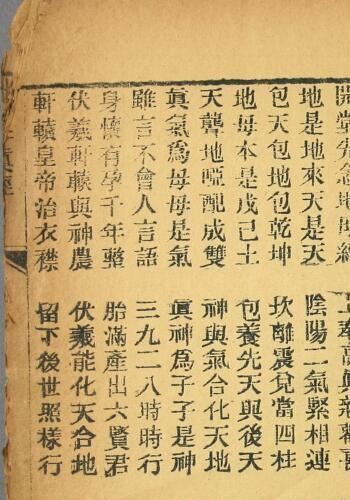 開堂先念地母經
地是地來天是天　陰陽二氣緊相連
包天包地包乾坤　坎離震兌當四柱
地母本是戊己土　包養先天與後天
天聾地啞配成雙　神與氣合化天地
眞氣為母母是氣　眞神為子子是神
雖言不會人言語　三九二八時時行
身懷有孕千年整　胎滿產出六賢君
伏羲軒轅與神農　伏羲能化天合地
軒轅皇帝治衣襟　留下後世照樣行